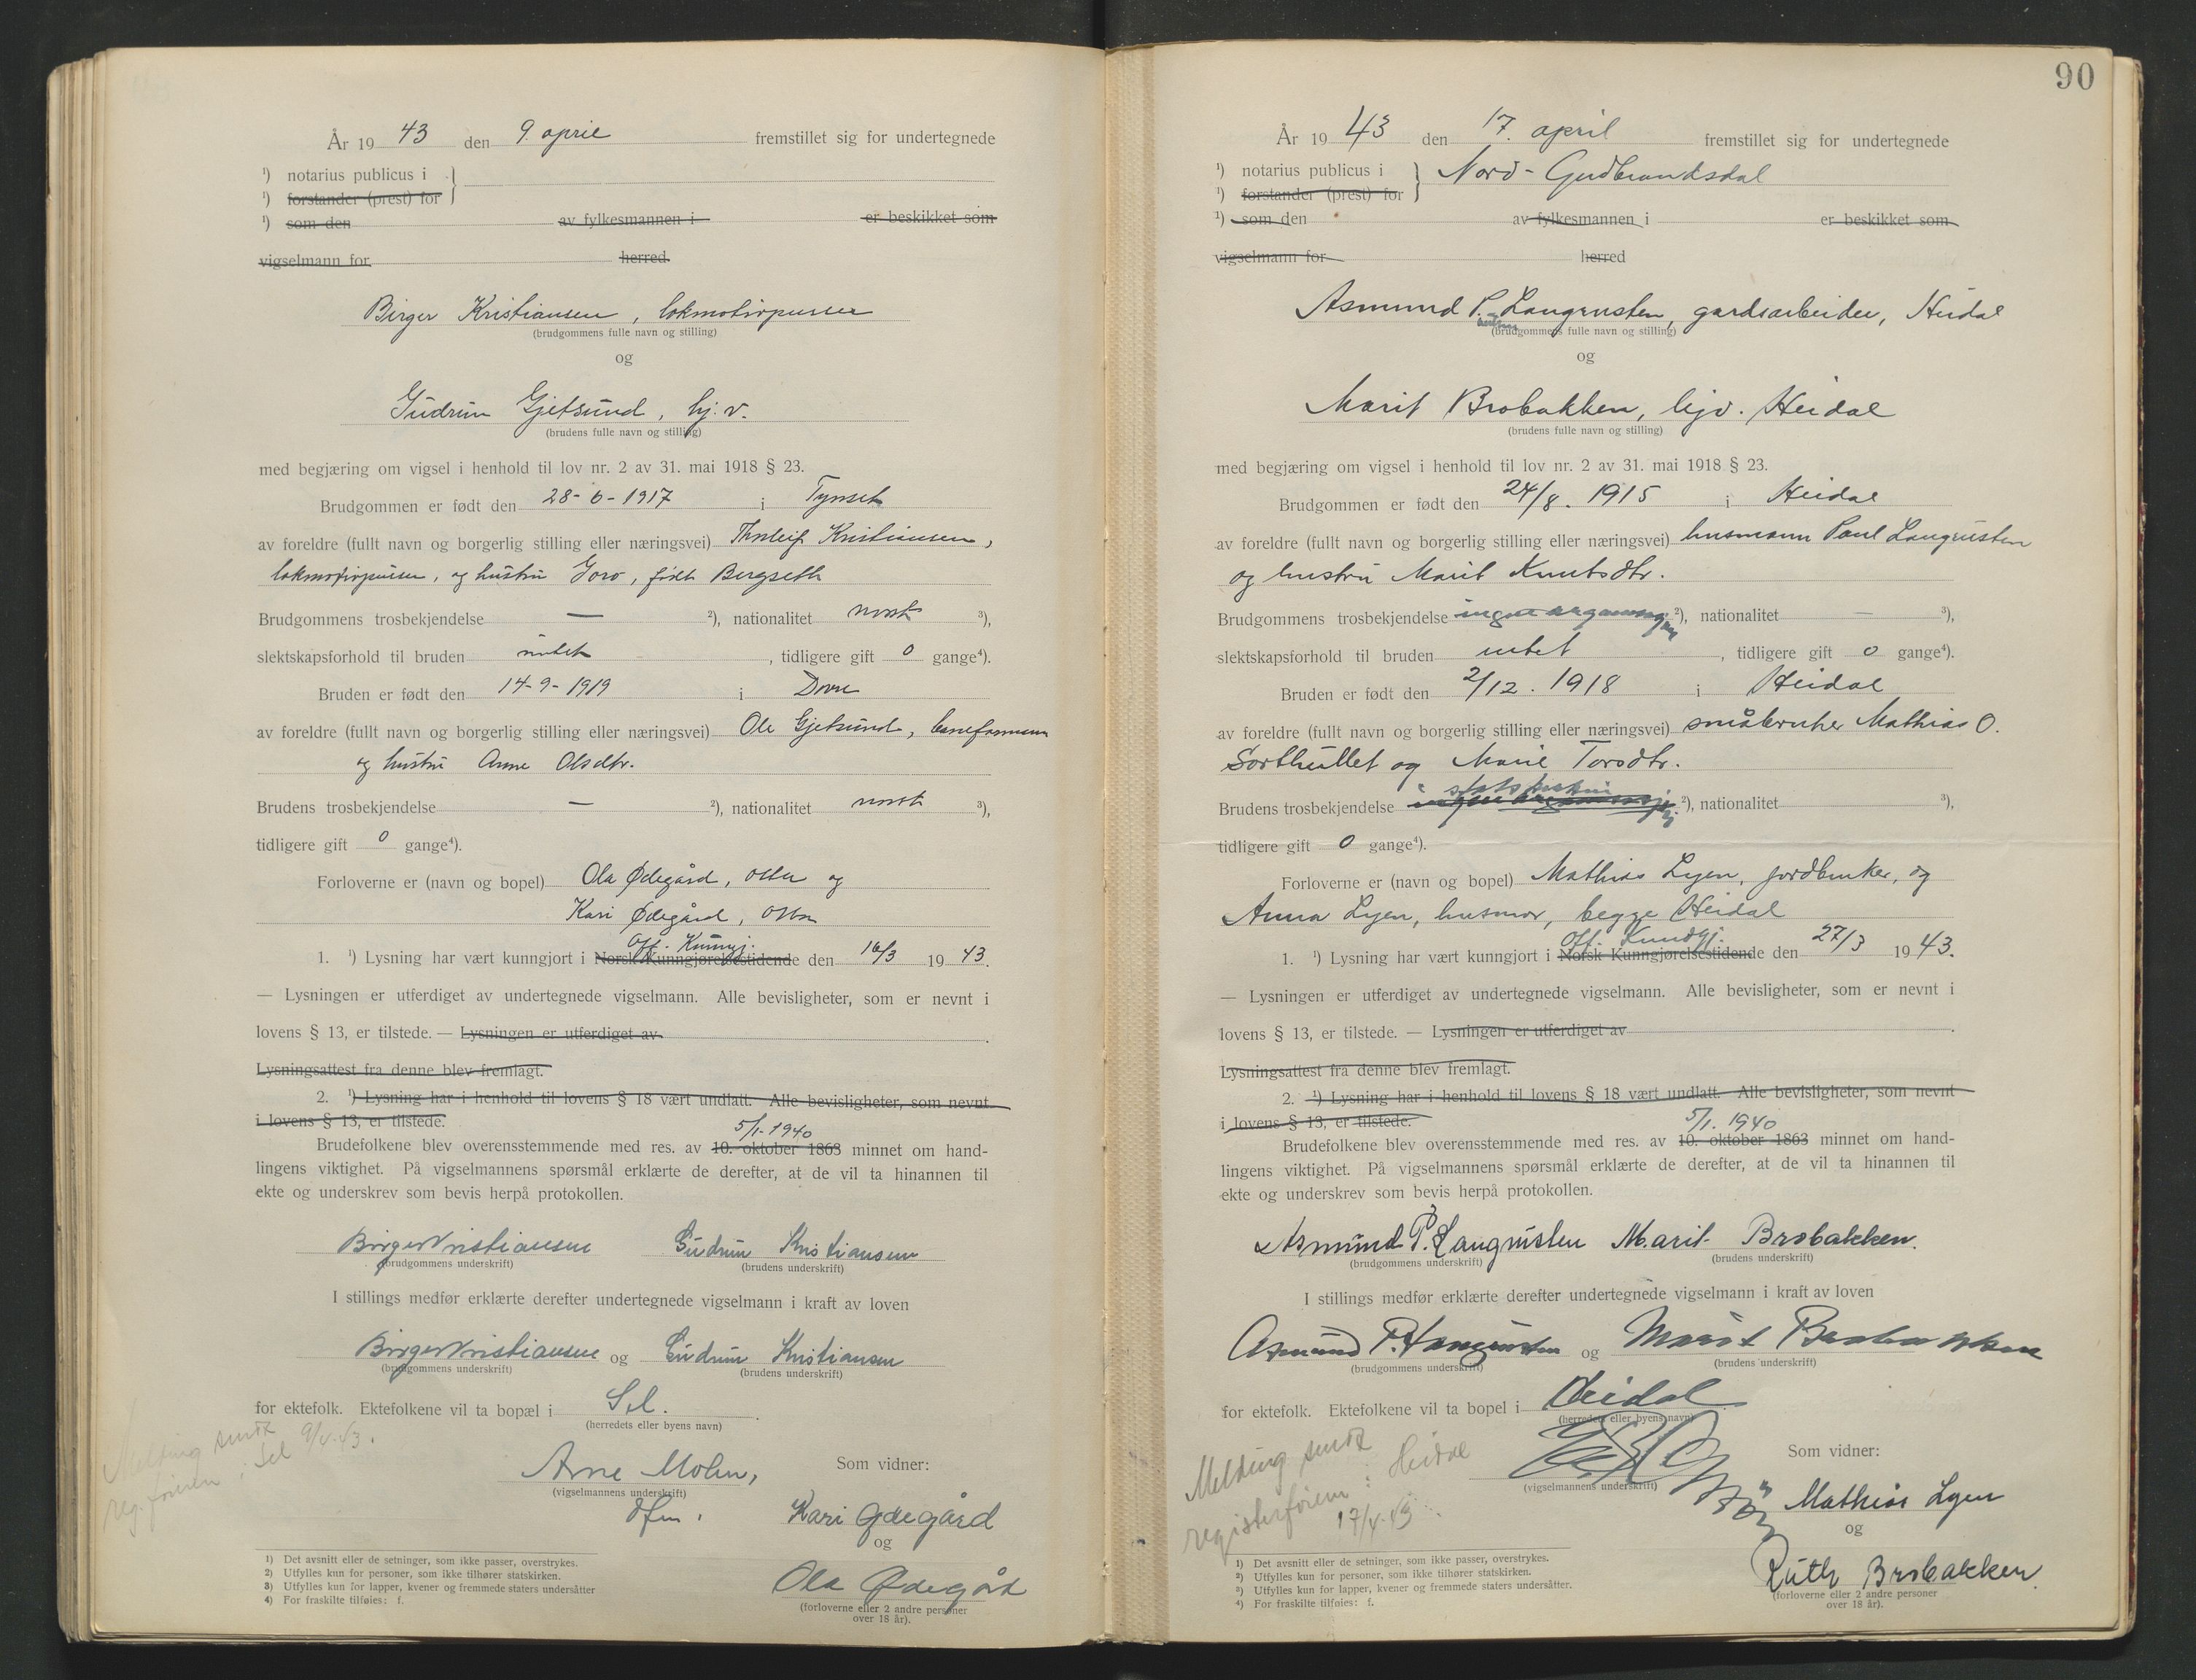 År 19 43 den 9. april fremstillet sig for undertegnede
¹) notarius publicus i
¹) forstander (prest) for
¹) som den av fylkesmannen i er beskikket som
vigselmann for herred.
Birger Kristiansen, lokmotivpusser
(brudgommens fulle navn og stilling)
og
Gudrun Gjetsund, hj.v.
(brudens fulle navn og stilling)
med begjæring om vigsel i henhold til lov nr. 2 av 31. mai 1918 § 23.
Brudgommen er født den 28-6-1917 i Tynset
av foreldre (fullt navn og borgerlig stilling eller næringsvei) Thorleif Kristiansen,
lokmotivpusser, og hustru Goro, født Bergseth
Brudgommens trosbekjendelse — ²), nationalitet norsk ³),
slektskapsforhold til bruden intet, tidligere gift 0 gange⁴).
Bruden er født den 14-9-1919 i Dovre
av foreldre (fullt navn og borgerlig stilling eller næringsvei) Ole Gjetsund, baneformann
og hustru Anne Olsdtr.
Brudens trosbekjendelse — ²), nationalitet norsk ³),
tidligere gift 0 gange⁴).
Forloverne er (navn og bopel) Ola Ødegård, Otta og
Kari Ødegård, Otta
Off. Kunngj.
1. ¹) Lysning har vært kunngjort i Norsk Kunngjørelsestidende den 16/3 19 43.
— Lysningen er utferdiget av undertegnede vigselmann. Alle bevisligheter, som er nevnt i
lovens § 13, er tilstede. — Lysningen er utferdiget av
Lysningsattest fra denne blev fremlagt.
2. ¹) Lysning har i henhold til lovens § 18 vært undlatt. Alle bevisligheter, som nevnt
i lovens § 13, er tilstede.
5/1-1940
Brudefolkene blev overensstemmende med res. av 10. oktober 1863 minnet om hand-
lingens viktighet. På vigselmannens spørsmål erklærte de derefter, at de vil ta hinannen til
ekte og underskrev som bevis herpå protokollen.
Birger Kristiansen Gudrun Kristiansen
(brudgommens underskrift) (brudens underskrift)
I stillings medfør erklærte derefter undertegnede vigselmann i kraft av loven
Birger Kristiansen og Gudrun Kristiansen
(brudgommens underskrift) (brudens underskrift)
for ektefolk. Ektefolkene vil ta bopæl i Sel.
(herredets eller byens navn)
Melding sendt
reg.føreren i Sel 9/4-43.
Arne Mohn,
(vigselmannens underskrift)
dfm.
Som vidner:
Kari Ødegård
og
Ola Ødegård
(forloverne eller 2 andre personer
over 18 år).
¹) Det avsnitt eller de setninger, som ikke passer, overstrykes.
²) Utfylles kun for personer, som ikke tilhører statskirken.
³) Utfylles kun for lapper, kvener og fremmede staters undersåtter
⁴) For fraskilte tilføies: f.
90
År 19 43 den 17. april fremstillet sig for undertegnede
¹) notarius publicus i Nord-Gudbrandsdal
¹) forstander (prest) for
¹) som den av fylkesmannen i er beskikket som
vigselmann for herred
Asmund P. Langrusten, gardsarbeider, Heidal
(brudgommens fulle navn og stilling)
og
Marit Brobakken, hjv. Heidal
(brudens fulle navn og stilling)
med begjæring om vigsel i henhold til lov nr. 2 av 31. mai 1918 § 23.
Brudgommen er født den 24/8. 1915 i Heidal
av foreldre (fullt navn og borgerlig stilling eller næringsvei) husmann Paul Langrusten
og hustru Marit Knutsdtr.
Brudgommens trosbekjendelse ²), nationalitet — ³),
slektskapsforhold til bruden intet, tidligere gift 0 gange⁴).
Bruden er født den 2/12. 1918 i Heidal
av foreldre (fullt navn og borgerlig stilling eller næringsvei) småbruker Mathias O.
Sorthullet og Marie Torsdtr.
Brudens trosbekjendelse ²), nationalitet ³),
tidligere gift 0 gange⁴).
Forloverne er (navn og bopel) Mathias Lyen, jordbruker, og
Anna Lyen, husmor, begge Heidal
Off. Kundgj.
1. ¹) Lysning har vært kunngjort i Norsk Kunngjørelsestidende den 27/3 19 43.
— Lysningen er utferdiget av undertegnede vigselmann. Alle bevisligheter, som er nevnt i
lovens § 13, er tilstede. — Lysningen er utferdiget av .
Lysningsattest fra denne blev fremlagt.
2. ¹) Lysning har i henhold til lovens § 18 vært undlatt. Alle bevisligheter, som nevnt
i lovens § 13, er tilstede.
5/1. 1940
Brudefolkene blev overensstemmende med res. av 10. oktober 1863 minnet om hand-
lingens viktighet. På vigselmannens spørsmål erklærte de derefter, at de vil ta hinannen til
ekte og underskrev som bevis herpå protokollen.
Asmund P. Langrusten Marit Brobakken.
(brudgommens underskrift) (brudens underskrift)
I stillings medfør erklærte derefter undertegnede vigselmann i kraft av loven
Asmund P. Langrusten og Marit Brobakken
(brudgommens underskrift) (brudens underskrift)
for ektefolk. Ektefolkene vil ta bopel i Heidal
(herredets eller byens navn)
Melding sendt
registerføreren i Heidal
17/4-43.
(vigselmannens underskrift)
Som vidner:
Mathias Lyen
og
Ruth Brobakken
(forloverne eller 2 andre personer
over 18 år).
¹) Det avsnitt eller de setninger, som ikke passer, overstrykes.
²) Utfylles kun for personer, som ikke tilhører statskirken.
³) Utfylles kun for lapper, kvener og fremmede staters undersåtter.
⁴) For fraskilte tilføies: f.